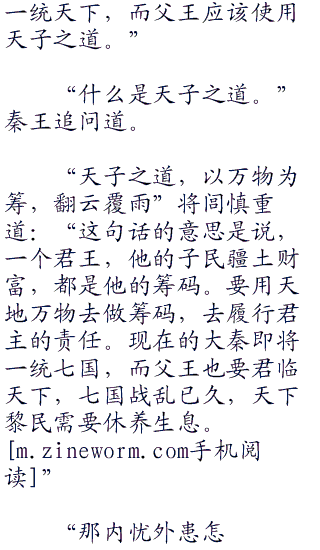 一统天下，而父王应该使用
天子之道。”
“什么是天子之道。”
秦王追问道。
“天子之道，以万物为
筹，翻云覆雨”将闾慎重
道：“这句话的意思是说，
一个君王，他的子民疆土财
富，都是他的筹码。要用天
地万物去做筹码，去履行君
主的责任。现在的大秦即将
一统七国，而父王也要君临
天下，七国战乱已久，天下
黎民需要休养生息。
[m.zineworm.com手机阅
读]”
“那内忧外患怎